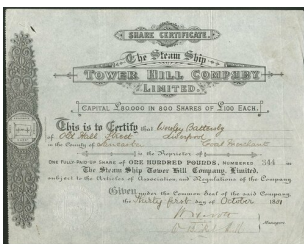 SHARE CERTIFICATE.
The Steam Ship
TOWER HILL COMPANY
LIMITED.
CAPITAL £80,000 IN 800 SHARES OF £100 EACH.
This is to Certify that Worsley Battersby
of Old Hall Street Liverpool
in the County of Lancaster Coal Merchant
is the Proprietor of
ONE FULLY PAID UP SHARE OF ONE HUNDRED POUNDS, NUMBERED 544 in
The Steam Ship Tower Hill Company, Limited,
subject to the Articles of Association, and Regulations of the Company
Given under the Common Seal of the said Company
the Thirty first day of October 1881
Managers